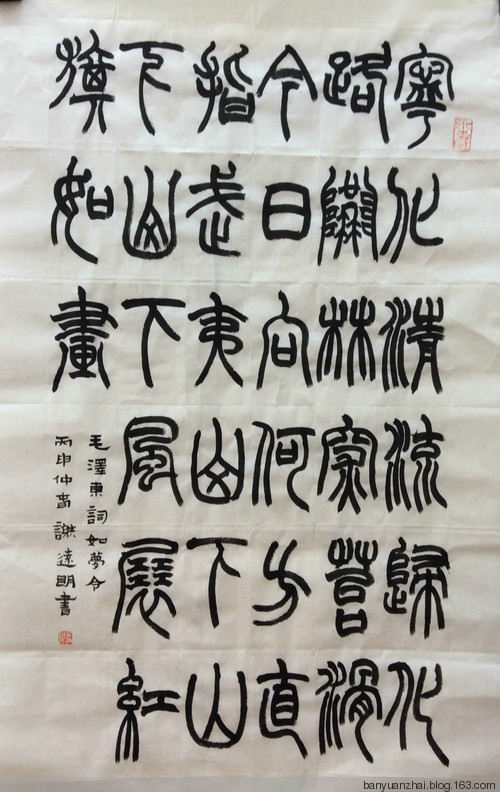 寧化清流歸化
路隘林深苔滑
今日向何方直
指武夷山下山
下山下風展紅
旗如畫
毛澤東詞如夢令
丙申仲旾謝遠明書
banyuanzhai.blog.163.com